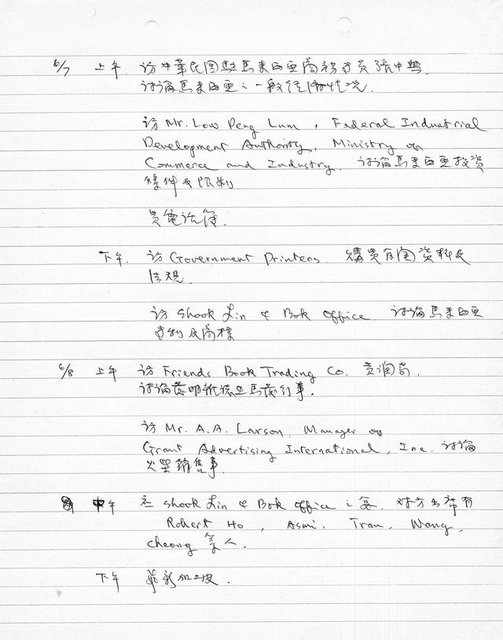 6/7 上午 訪中華民國駐馬來西亞商務專員張中興
討論馬來西亞之一般經濟情況.
訪 Mr. Low Peng Lum, Federal Industrial
Development Authority, Ministry of
Commerce and Industry. 討論馬來西亞投資
條件及限制
下午. 訪 Government Printers. 購買有關資料及
法規.
訪 Shook Lin & Bok Office 討論馬來西亞
專利及商標
6/8 上午 訪 Friends Book Trading Co.
訪 Mr. A.A. Larson. Manager of
Grant Advertising International, Inc. 討論
銷售事.
中午 Shook Lin & Bok Office 之宴. 對方出席有
Robert Ho, Asmi. Tran, Wang,
Cheong 等人.
下午 新加坡.